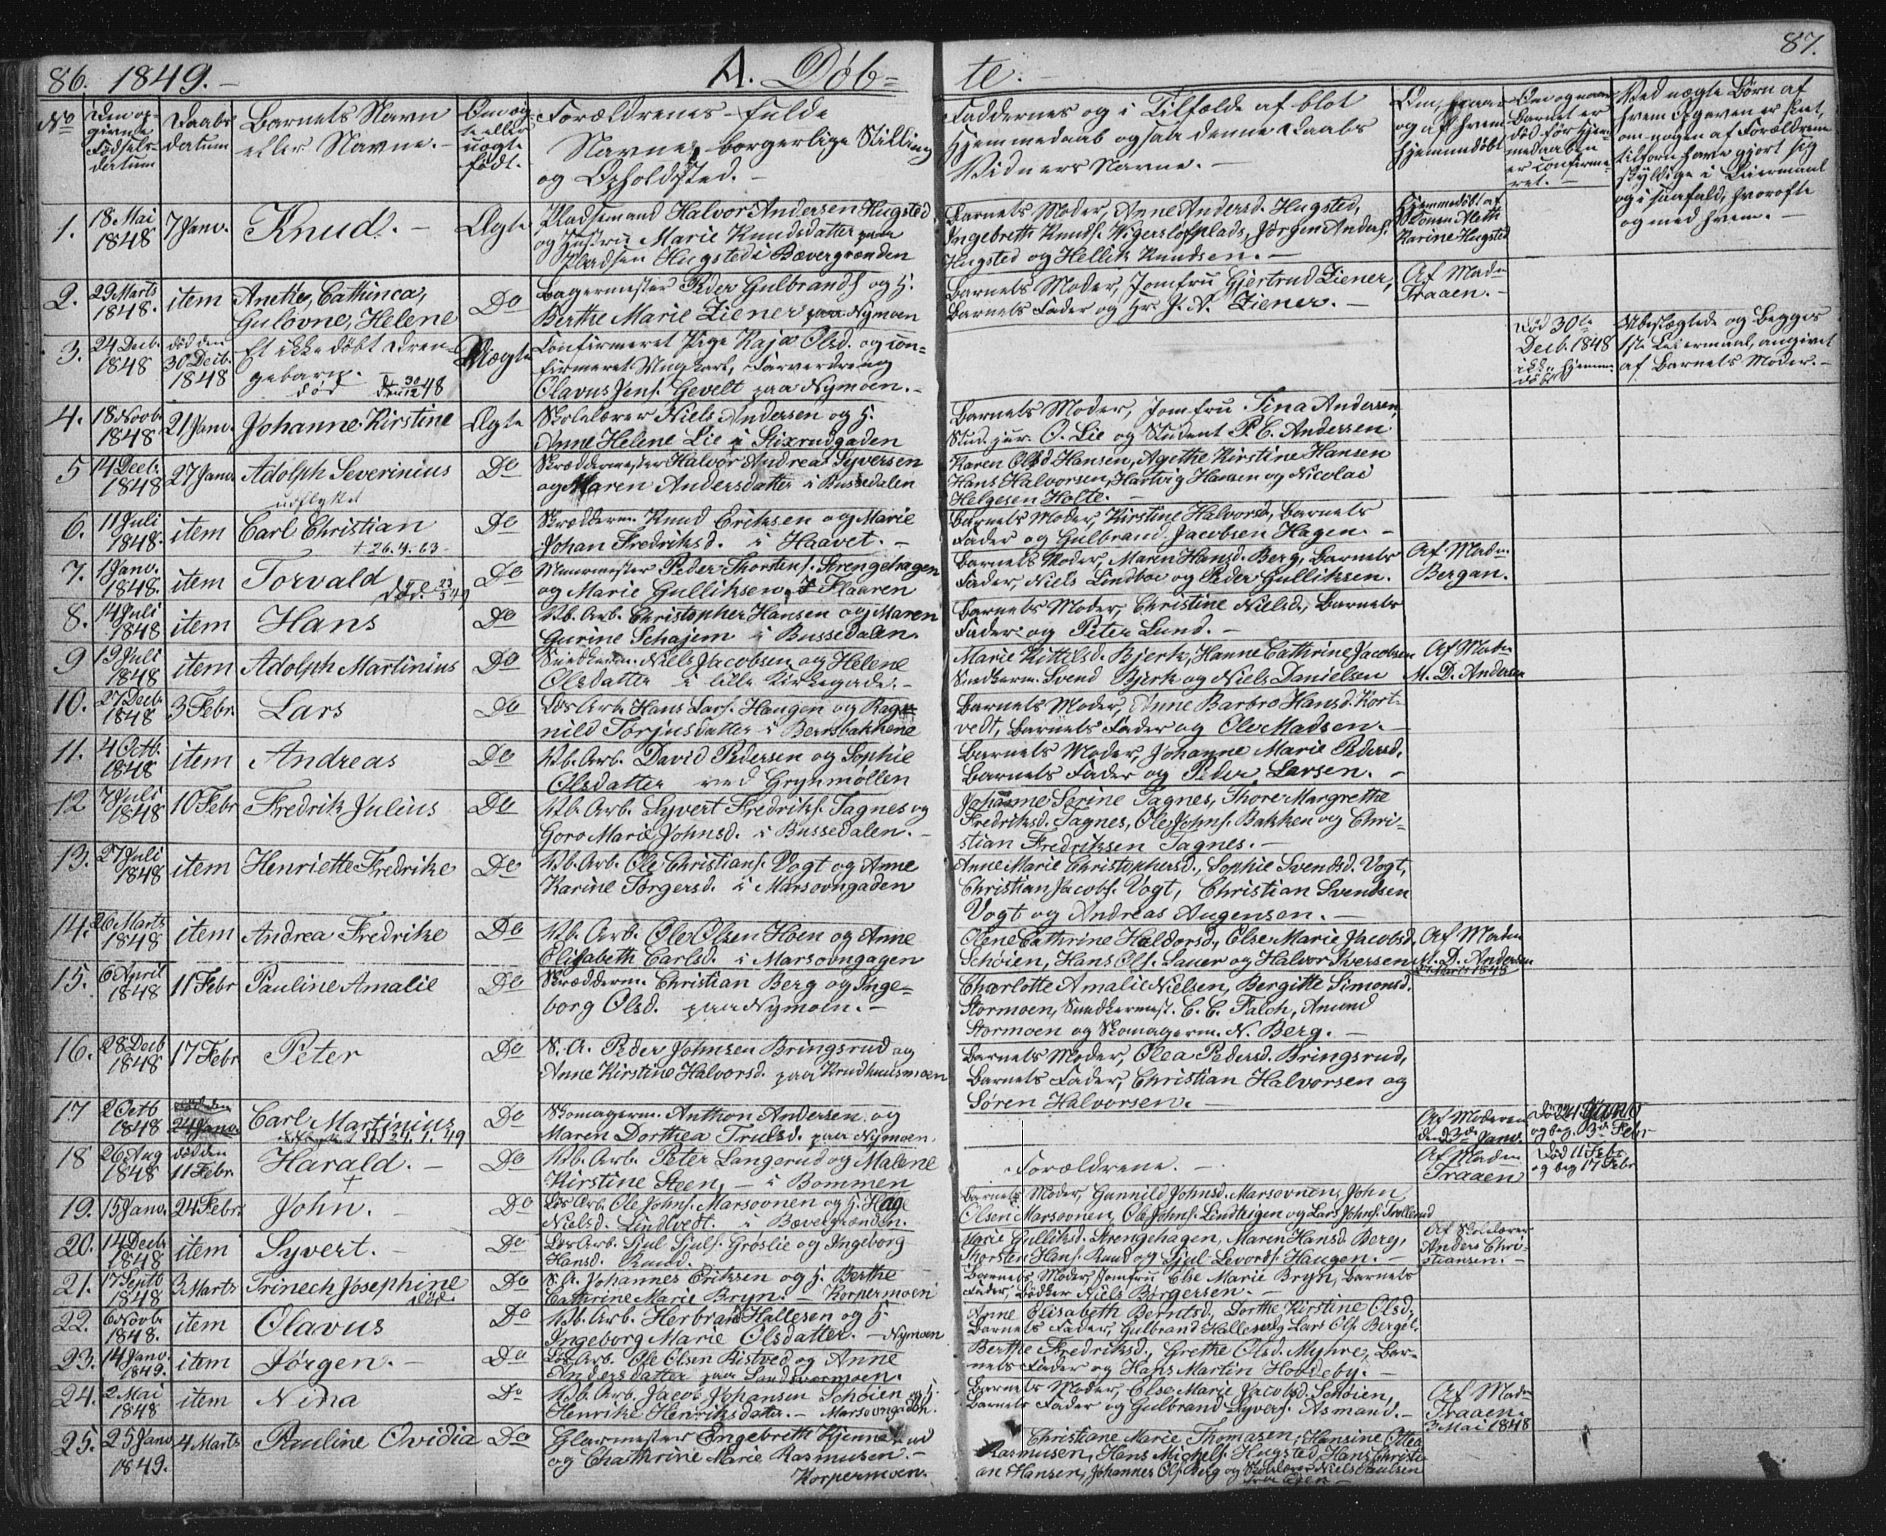 86. 1849. A. Døb= te. 87.
No
Den op-
givne
Fødsels-
datum
Daabs
datum
Barnets Navn
eller Navne.
Om æg-
te eller
uægte
født.
Forældrenes fulde
Navne, borgerlige Stilling
og Opholdsted.
Faddernes og i Tilfælde af blot
Hjemmedaab ogsaa denne Daabs
Vidners Navne.
Om, hvaar
og af hvem
hjemmedøbt
Om og naar
Barnet er
død før Hjem-
medaaben
er confirme-
ret.
Ved uægte Børn af
hvem Opgaven er skeet,
om nogen af Forældrene
tilforn have gjort sig
skyldige i Leiermaal
og i saafald, hvorofte
og med hvem.
1. 18 Mai 1848 7 Janv. Knud. Ægte
Pladsemand Halvor Andersen Hugsted
og Hustru Marie Knudsdatter paa
Pladsen Hugsted i Bævergrænden
Barnets Moder, Anne Andersd. Hugsted,
Ingebreth Knuds. Vigersløfplads, Jørgen Anders.
Hugsted og Hellik Knudsen.
Hjemmedøbt af
Karine Hugsted
2. 29 Marts 1848. item Anethe, Cathinca,
Gulovne, Helene Do
Bagermester Peder Gulbrands. og H.
Berthe Marie Ziener paa Nymoen
Barnets Moder, Jomfru Gjertrud Ziener,
Barnets Fader og Hr. P. A. Ziener.
Af Mad.
Traaen.
3. 24 Decb. 1848 død den 30 Decb. 1848
Et ikke døbt Dren-
gebarn. Uægte
død 30/12 48
Confirmeret Pige Kaja Olsd. og con-
firmeret Ungkarl, Farversvend
Olavus Jens. Gevelt paa Nymoen.
Død 30te
Decb. 1848
ikke hjemme
døbt
Ubeslægtede og Begges
1ste Leiermaal, angivet
af Barnets Moder.
4. 18 Novb. 1848. 21 Janv. Johanne Kirstine Ægte
Skolelærer Niels Andersen og H.
Anne Helene Lie i Stixrudgaden
Barnets Moder, Jomfru Tina Andersen,
Stud. jur. O. Lie og Student P. C. Andersen
5 14 Decb. 1848 27 Janv. Adolph Severinius Do
udflyttet
Skræddermester Halvor Andreas Syversen
og Maren Andersdatter i Bussedalen
Karen Olsd Hansen, Agethe Kirstine Hansen
Hans Halvorsen, Hartvig Hansen og Nicolai
Helgesen Holte.
6. 11 Juli 1848. item Carl Christian Do
+ 26.4.63
Skrædderm. Knud Eriksen og Marie
Johan Fredriksd. i Haavet.
Barnets Moder, Kirstine Halvorsd., Barnets
Fader og Gulbrand Jacobsen Hagen.
7. 1 Janv. 1848. item Torvald Do
død. 23/5 49
Muurmester Peder Thorstens. Strengehagen
og Marie Gulliksen i Flaaren
Barnets Moder, Maren Hansd. Berg, Barnets
Fader, Niels Lindboe og Peder Gulliksen.
Af Mad.
Bergan.
8. 14 Juli 1848 item Hans Do
Vb. Arb. Christopher Hansen og Maren
Gurine Schajem i Bussedalen.
Barnets Moder, Christine Nielsd., Barnets
Fader og Peter Lund.
9 19 Juli 1848 item Adolph Martinius Do
Snedkerm. Niels Jacobsen og Helene
Olsdatter i lille Kirkegade.
Marie Kittilsd. Bjerk, Hanne Cathrine Jacobsen
Snedkerm. Svend Bjerk og Niels Danielsen
Af Mad.
M. D. Andersen
10. 27 Decb. 1848 3 Febr. Lars Do
Løs Arb. Hans Lars. Haugen og Rag-
nild Torjusdatter i Bernbakkene
Barnets Moder, Anne Barbro Hansd. Kort-
vedt, Barnets Fader og Ole Madsen.
11. 4 Octb. 1848 item Andreas Do
Vb. Arb. David Pedersen og Sophie
Olsdatter ved Grynmøllen
Barnets Moder, Johanne Marie Pedersd.
Barnets Fader og Peder Larsen.
12 7 Juli 1848 10 Febr Fredrik Julius Do
Vb. Arb. Syvert Fredriks. Fagnes og
Goro Marie Johnsd. i Bussedalen.
Johanne Serine Fagnes, Thore Margrethe
Fredriksd. Fagnes, Ole Johns. Bakken og Chri-
stian Fredriksen Fagnes.
13. 27 Juli 1848 item Henriette Fredrike Do
Vb. Arb. Ole Christians. Vogt og Anne
Karine Torgersd. i Marsovngaden
Anne Marie Christophersd., Sophie Svendsd. Vogt,
Christian Jacobs. Vogt, Christian Svendsen
Vogt og Andreas Augensen.
14. 26 Marts 1848 item Andrea Fredrike Do
Vb. Arb. Ole Olsen Hoen og Anne
Elisabeth Carlsd. i Marsovngagen
Olene Cathrine Haldorsd., Else Marie Jacobsd.
Schøien, Hans Ols. Sauer og Halvor Iversen
Af Maden
M. D. Andersen
Marts 1848
15. 6 April 1848 11 Febr Pauline Amalie Do
Skrædderm. Christian Berg og Inge-
borg Olsd. paa Nymoen.
Charlotte Amalie Nielsen, Bergitte Simonsd.
Stormoen, Snedkermest. C. C. Falch, Amund
Stormoen og Skomagerm. N. Berg.
16. 28 Decb 1848 17 Febr Peter Do
S. A. Peder Johnsen Bringsrud og
Anne Kirstine Halvorsd. paa Krudhuusmoen
Barnets Moder, Olea Pedersd. Bringsrud,
Barnets Fader, Christian Halvorsen og
Søren Halvorsen.
17 2 Octb 1848 24 Janv. Carl Martinius Do
24. 1. 49
Skomagerm. Anthon Andersen og
Maren Dorthea Trulsd. paa Nymoen.
Af Moderen
den 23de Janv.
Død 24 Janv
og beg. 3d Febr
18 26 Aug 1848 død den 11 Febr. Harald. Do
+
Vb. Arb. Peter Langerud og Malene
Kirstine Steen, i Bommen
Forældrene.
Af Maden
Traaen
Død 11 Febr
og beg 17 Febr
19. 15 Janv. 24 Febr. John. Do
Løs Arb. Ole Johns. Marsovnen og H. Hage
Nielsd. Lindtvedt. i Bævergrænden.
Barnets Moder, Gunnild Johnsd. Marsovnen, John
Olsen Marsovnen, Ole Johns. Lindteigen og Lars Johns. Trollerud
20. 14 Decb. 1848 item Syvert. Do
Løs Arb. Sjul Sjuls. Grøslie og Ingeborg
Hansd. Ruud.
Marie Gulliksd. Strengehagen, Maren Hansd. Berg,
Thorsten Hans. Ruud og Sjul Levords. Haugen.
Af Skolelærer
Anders Chri-
stiansen.
21. 17 Septb 1848 3 Marts Trinech Josephine Do
død
S. A. Johannes Eriksen og H. Berthe
Cathrine Marie Bryn. Korpermoen
Barnets Moder, Jomfru Else Marie Bryn, Barnets
Fader, Bødker Niels Børgersen.
22. 6 Novb. 1848. item Olavus Do
Vb. Arb. Herbrand Hallesen og H.
Ingeborg Marie Olsdatter. Nymoen
Anne Elisabeth Berntsd., Dorthe Kirstine Olsd,
Barnets Fader, Gulbrand Hallesen og Lars Ols. Berget.
23. 14 Janv 1849. item Jørgen. Do
Løs Arb. Ole Olsen Kistved og Anne
Andersdatter paa Sandsværmoen.
Berthe Fredriksd., Grethe Olsd. Myhre, Bar-
nets Fader og Hans Martin Hovdeby.
24. 2 Mai 1848 item Nina Do
Vb. Arb. Jacob Johansen Schøien og H.
Henrike Henriksdatter. Marsovngaden.
Barnets Moder, Else Marie Jacobsd. Schøien,
Barnets Fader og Gulbrand Syvers. Asmand.
Af Mad.
Traaen.
3 Mai 1848
25. 25 Janv 1849. 4 Marts Pauline Ovidia Do
Glarmester Engebreth Hjennerud
og Chathrine Marie Rasmusen.
Korpermoen.
Christiane Marie Thomasen, Hansine Ottea
Rasmusen, Hans Michels. Hugsted, Hans Christi-
an Hansen, Johannes Ols. Berg og Skolelærer Niels Paulsen